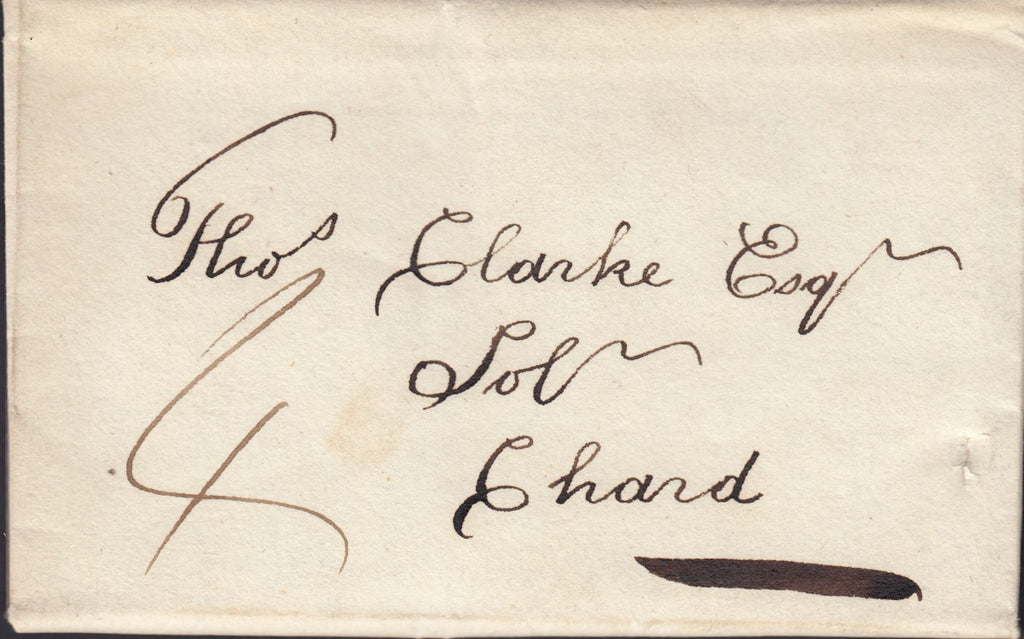 Thos Clarke Esqr
Solr
Chard
4